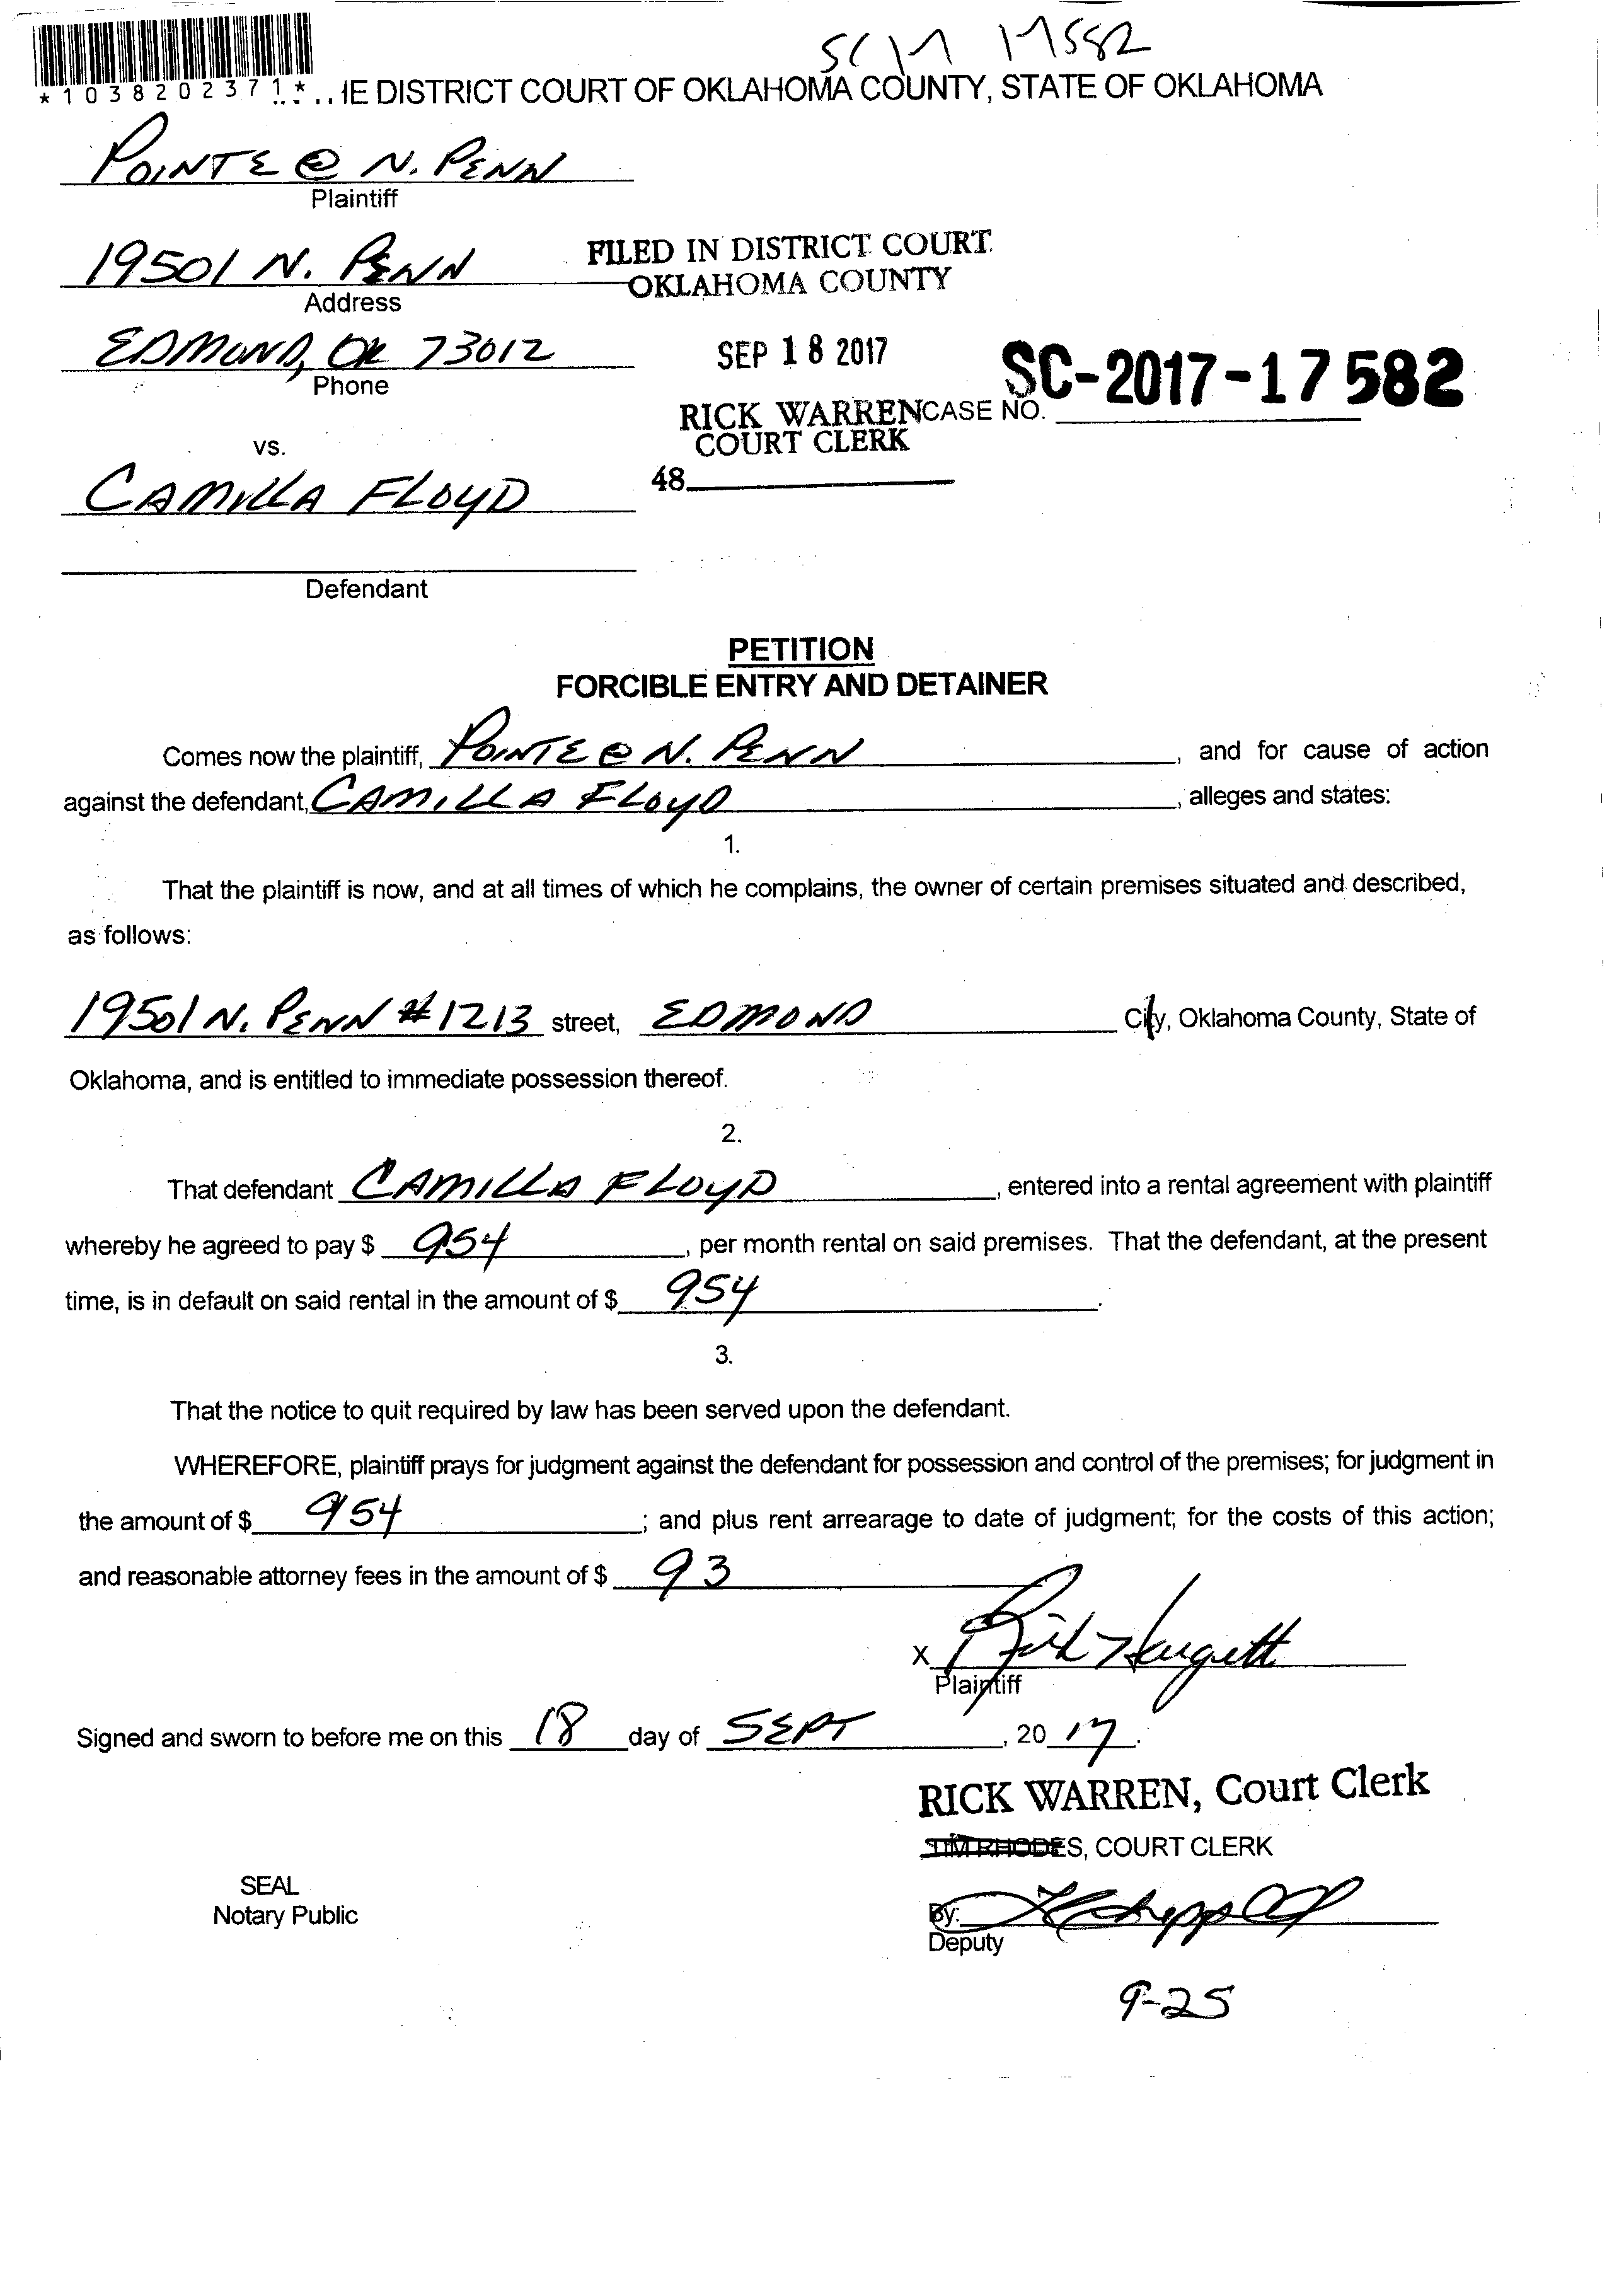 SC17 17582
*1038202371*
IE DISTRICT COURT OF OKLAHOMA COUNTY, STATE OF OKLAHOMA
POINTE @ N. PENN
Plaintiff
19501 N. PENN
Address
FILED IN DISTRICT COURT
OKLAHOMA COUNTY
EDMOND, OK 73012
Phone
SEP 18 2017
SC-2017-17582
RICK WARREN
COURT CLERK
CASE NO.
48
vs.
CAMILLA FLOYD
Defendant
PETITION
FORCIBLE ENTRY AND DETAINER
Comes now the plaintiff, POINTE @ N. PENN, and for cause of action
against the defendant, CAMILLA FLOYD, alleges and states:
1.
That the plaintiff is now, and at all times of which he complains, the owner of certain premises situated and described,
as follows:
19501 N. PENN #1213 street, EDMOND City, Oklahoma County, State of
Oklahoma, and is entitled to immediate possession thereof.
2.
That defendant CAMILLA FLOYD, entered into a rental agreement with plaintiff
whereby he agreed to pay $ 954, per month rental on said premises. That the defendant, at the present
time, is in default on said rental in the amount of $ 954.
3.
That the notice to quit required by law has been served upon the defendant.
WHEREFORE, plaintiff prays for judgment against the defendant for possession and control of the premises; for judgment in
the amount of $ 954; and plus rent arrearage to date of judgment; for the costs of this action;
and reasonable attorney fees in the amount of $ 93
X
Plaintiff
Signed and sworn to before me on this 18 day of SEPT, 20 17.
RICK WARREN, Court Clerk
TIM RHODES, COURT CLERK
SEAL
Notary Public
By:
Deputy
9-25